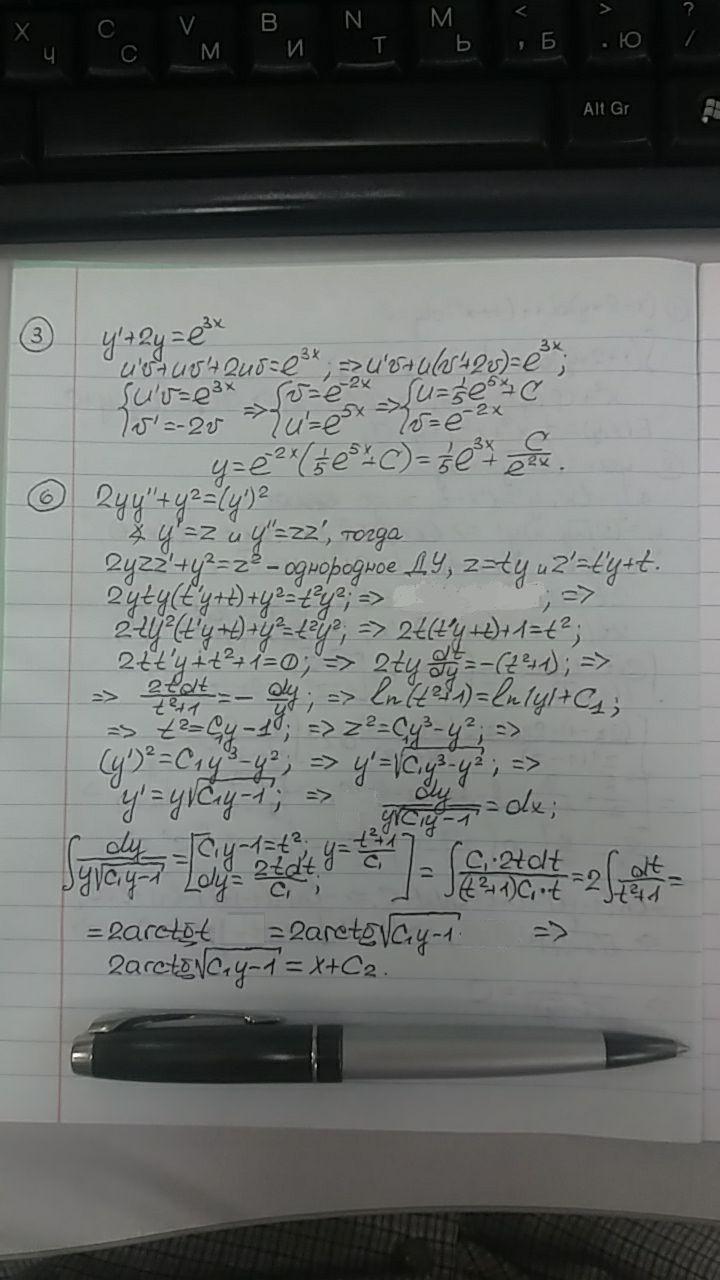 X Ч C С V М B И N Т M Ь < , Б > . Ю ? /
Alt Gr
③ y'+2y=e^{3x}
u'v+uv'+2uv=e^{3x}; ⇒ u'v+u(v'+2v)=e^{3x};
{u'v=e^{3x} v'=-2v ⇒ {v=e^{-2x} u'=e^{5x} ⇒ {u=\frac{1}{5}e^{5x}+C v=e^{-2x}
y=e^{-2x}(\frac{1}{5}e^{5x}+C)=\frac{1}{5}e^{3x}+\frac{C}{e^{2x}}.
⑥ 2yy''+y²=(y')²
∡ y'=z и y''=zz', тогда
2yzz'+y²=z² – однородное ДУ, z=ty и z'=t'y+t.
2yty(t'y+t)+y²=t²y²; ⇒ ; ⇒
2ty²(t'y+t)+y²=t²y²; ⇒ 2t(t'y+t)+1=t²;
2tt'y+t²+1=0; ⇒ 2ty\frac{dt}{dy}=-(t²+1); ⇒
⇒ \frac{2tdt}{t²+1}=-\frac{dy}{y}; ⇒ ln(t²+1)=ln|y|+C₁;
⇒ t²=C₁y-1; ⇒ z²=C₁y³-y²; ⇒
(y')²=C₁y³-y²; ⇒ y'=√(C₁y³-y²); ⇒
y'=y√(C₁y-1); ⇒ \frac{dy}{y√(C₁y-1)}=dx;
∫\frac{dy}{y√(C₁y-1)}=[C₁y-1=t²; y=\frac{t²+1}{C₁} dy=\frac{2tdt}{C₁};]=∫\frac{C₁·2tdt}{(t²+1)C₁·t}=2∫\frac{dt}{t²+1}=
=2arctg t =2arctg√(C₁y-1) ⇒
2arctg√(C₁y-1)=x+C₂.